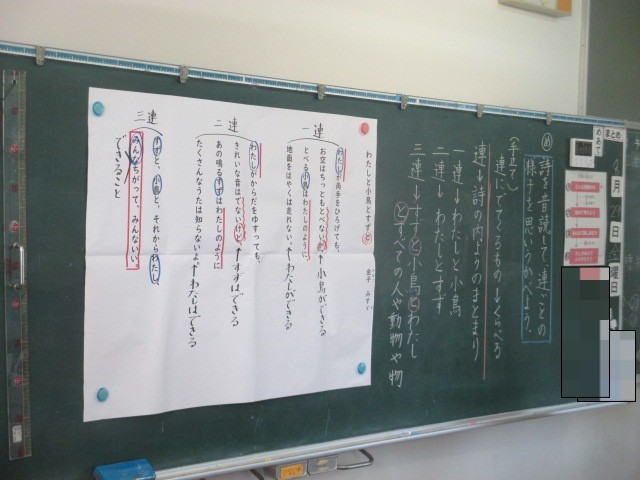 まとめ
めあて
月
日
曜日
め 詩を音読して、連ごとの
様子を思いうかべよう。
(手立て)
連にでてくるもの→くらべる
連→詩の内ようのまとまり
一連→わたしと小鳥
二連→わたしとすず
三連→すずと小鳥とわたし
とすべての人や動物や物
わたしと小鳥とすずと
金子 みすゞ
一連
わたしが両手をひろげても、
お空はちっともとべないが、↑小鳥ができる
とべる小鳥はわたしのように、
地面をはやくは走れない。↑わたしができる
二連
わたしがからだをゆすっても、
きれいな音はでないけど、↑すずはできる
あの鳴るすずはわたしのように
たくさんなうたは知らないよ。↑わたしはできる
三連
すずと、小鳥と、それからわたし、
みんなちがって、みんないい。
できること